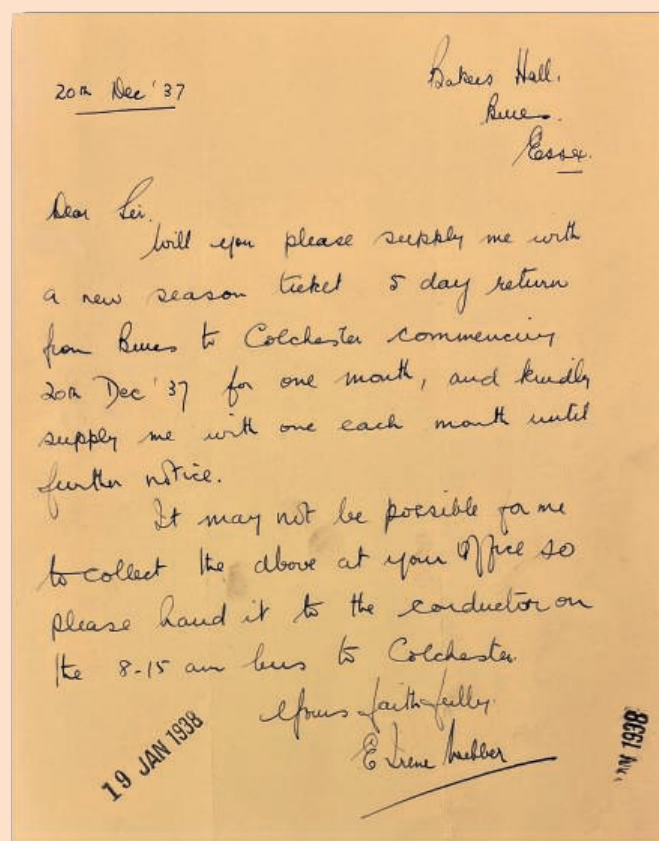 20th Dec '37
Bakers Hall.
Bures.
Essex.
Dear Sir.
Will you please supply me with
a new season ticket 5 day return
from Bures to Colchester commencing
20th Dec '37 for one month, and kindly
supply me with one each month until
further notice.
It may not be possible for me
to collect the above at your office so
please hand it to the conductor on
the 8-15 am bus to Colchester.
Yours faithfully.
E Irene
19 JAN 1938
1938